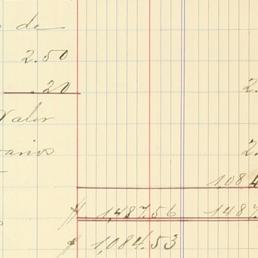 de
2.50
.20 2.
Valer
varios 2.
1,084
# 1,487.56 1487.
$ 1,084.53